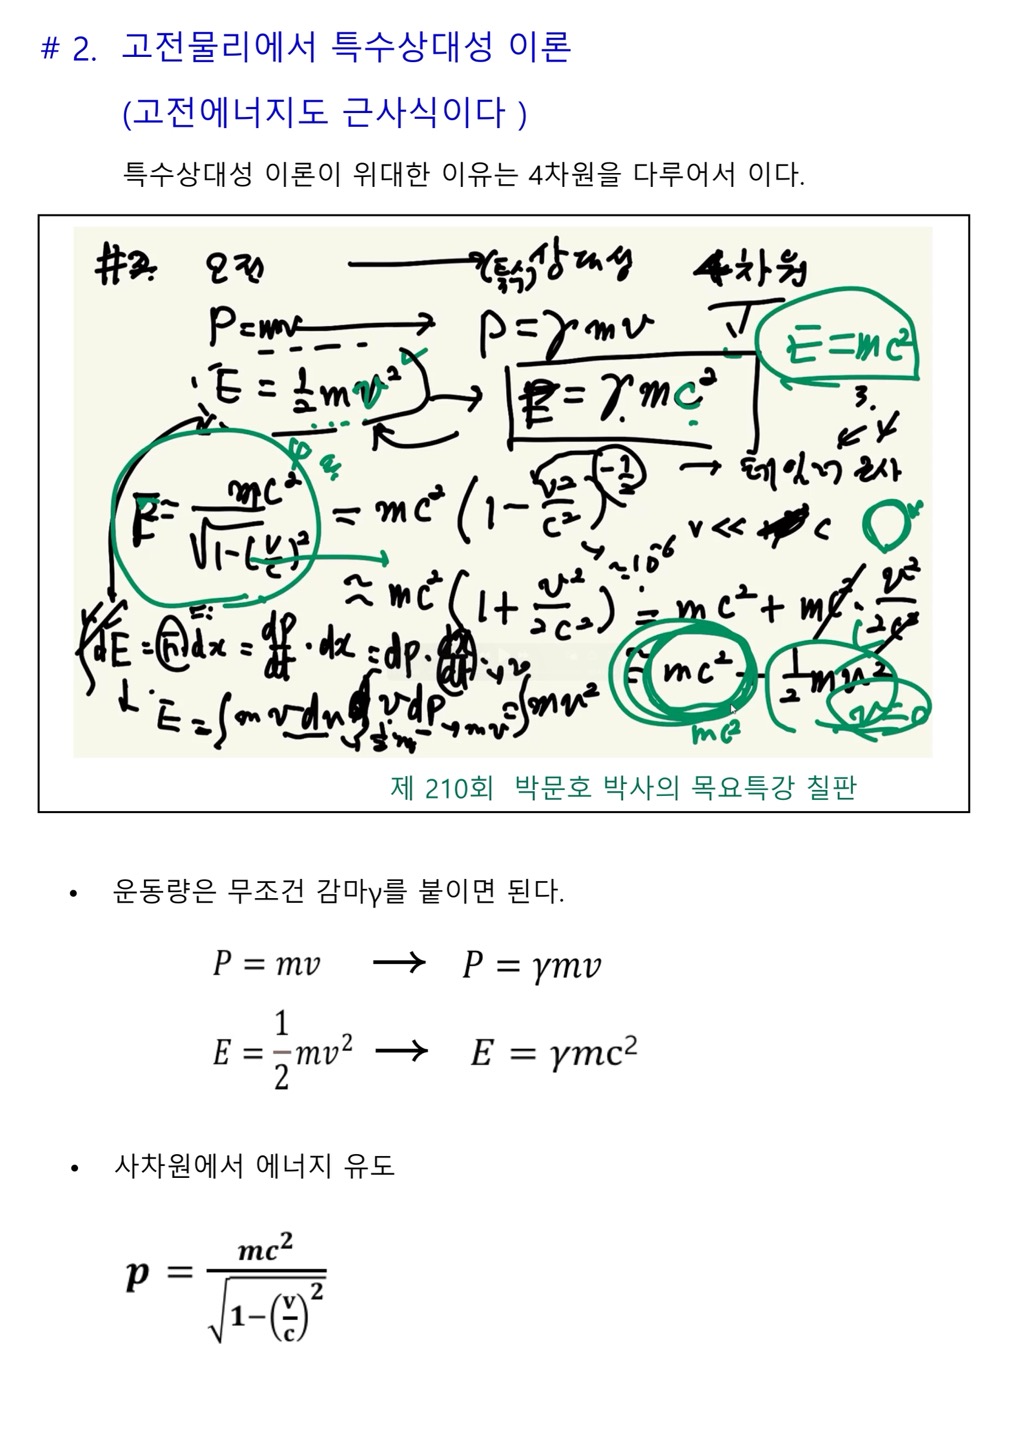 # 2. 고전물리에서 특수상대성 이론
(고전에너지도 근사식이다 )
특수상대성 이론이 위대한 이유는 4차원을 다루어서 이다.
#2. 고전 → (특수)상대성 4차원
P=mv → P=γmv
E=mc²
E = 1/2 mv² → E = γmc²
3.
→ 테일러 근사
E = mc²/√(1-(v/c)²) = mc²(1-v²/c²)^(-1/2) v << c
≈10⁻⁶
≈ mc²(1+v²/2c²) = mc² + mc²·v²/2c²
dE = F dx = dp/dt · dx = dp · dx/dt → v
≈ mc² + 1/2 mv²
E = ∫mv dv ∫v dp → mv = ∫mv²
mc²
v=0
제 210회 박문호 박사의 목요특강 칠판
• 운동량은 무조건 감마γ를 붙이면 된다.
P = mv → P = γmv
E = 1/2 mv² → E = γmc²
• 사차원에서 에너지 유도
p = mc²/√(1-(v/c)²)